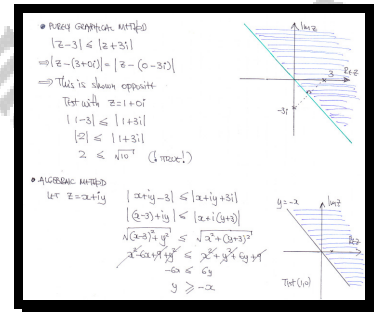 • PURELY GRAPHICAL METHOD
|z-3| ≤ |z+3i|
⇒ |z-(3+0i)| = |z-(0-3i)|
⇒ This is shown opposite
Test with z=1+0i
|1-3| ≤ |1+3i|
|-2| ≤ |1+3i|
2 ≤ √10 (! TRUE!)
Im z
Re z
3
-3i
• ALGEBRAIC METHOD
LET z=x+iy
|x+iy-3| ≤ |x+iy+3i|
|(x-3)+iy| ≤ |x+i(y+3)|
√(x-3)²+y² ≤ √x²+(y+3)²
x²-6x+9+y² ≤ x²+y²+6y+9
-6x ≤ 6y
y ≥ -x
y=-x
Im z
Re z
Test (1,0)